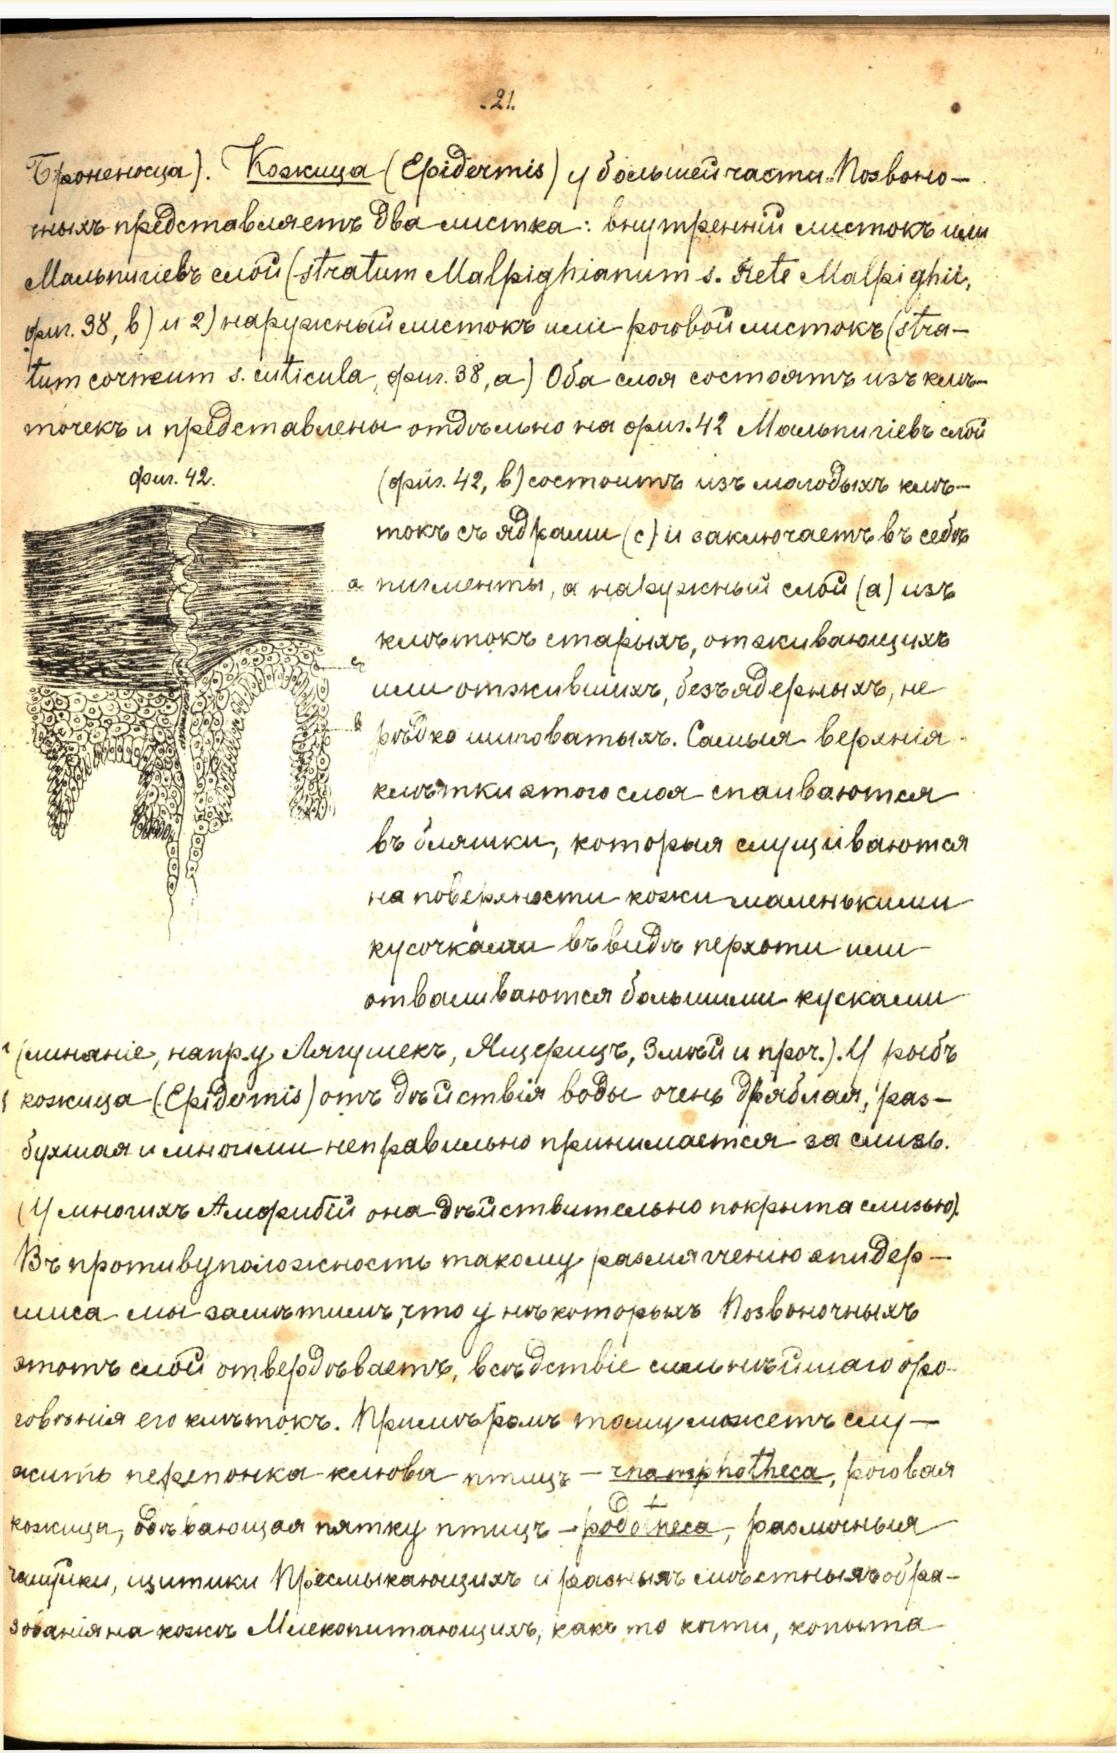 .21.
Броненосца). Кожица (Epidermis) у большей части Позвоно-
чныхъ представляетъ два листка: внутренній листокъ или
Мальпигіевъ слой (stratum Malpighianum s. Rete Malpighii,
фиг. 38, b) и 2) наружный листокъ или роговой листокъ (stra-
tum corneum s. cuticula, фиг. 38, a) Оба слоя состоятъ изъ клѣ-
точекъ и представлены отдѣльно на фиг. 42 Мальпигіевъ слой
фиг. 42.
(фиг. 42, b) состоитъ изъ молодыхъ клѣ-
токъ съ ядрами (c) и заключаетъ въ себѣ
a
пигменты, а наружный слой (a) изъ
клѣтокъ старыхъ, отживающихъ
c
или отжившихъ, безъядерныхъ, не
b
рѣдко шиповатыхъ. Самыя верхнія
клѣтки этого слоя спаиваются
въ бляшки, которыя слущиваются
на поверхности кожи маленькими
кусочками въ видѣ перхоти или
отваливаются большими кусками
(линяніе, напр. у Лягушекъ, Ящерицъ, Змѣй и проч.). У рыбъ
кожица (Epidermis) отъ дѣйствія воды очень дряблая, раз-
бухшая и многими неправильно принимается за слизь.
(У многихъ Амфибій она дѣйствительно покрыта слизью).
Въ противуположность такому размягченію эпидер-
миса мы замѣтимъ, что у нѣкоторыхъ Позвоночныхъ
этотъ слой отвердѣваетъ, вслѣдствіе сильнѣйшаго оро-
говѣнія его клѣтокъ. Примѣромъ тому можетъ слу-
жить перепонка клюва птицъ - rhamphotheca, роговая
кожица, одѣвающая пятку птицъ - podotheca, различныя
чешуйки, щитики Пресмыкающихъ и разныхъ мѣстныхъ обра-
зованія на кожѣ Млекопитающихъ, какъ то когти, копыта